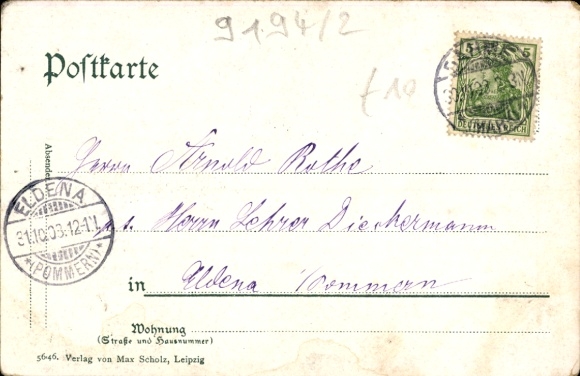 9194/2
Postkarte
5 5
£10
Absender
Herrn Arnold Rothe
ELDENA
31.10.03.12-1N.
*(POMMERN)*
Herrn Lehrer Dieckermann
in Eldena Pommern
Wohnung
(Straße und Hausnummer)
5646. Verlag von Max Scholz, Leipzig